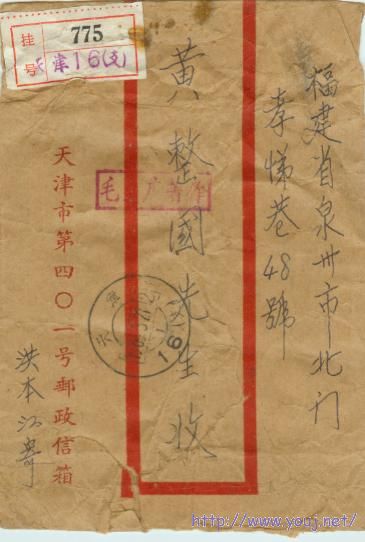 福建省泉州市北门
孝悌巷48號
黄整國先生收
天津市第四〇一号郵政信箱
洪本
寄
挂号
775
津16(支)
天津
16(支)
http://www.youj.net/